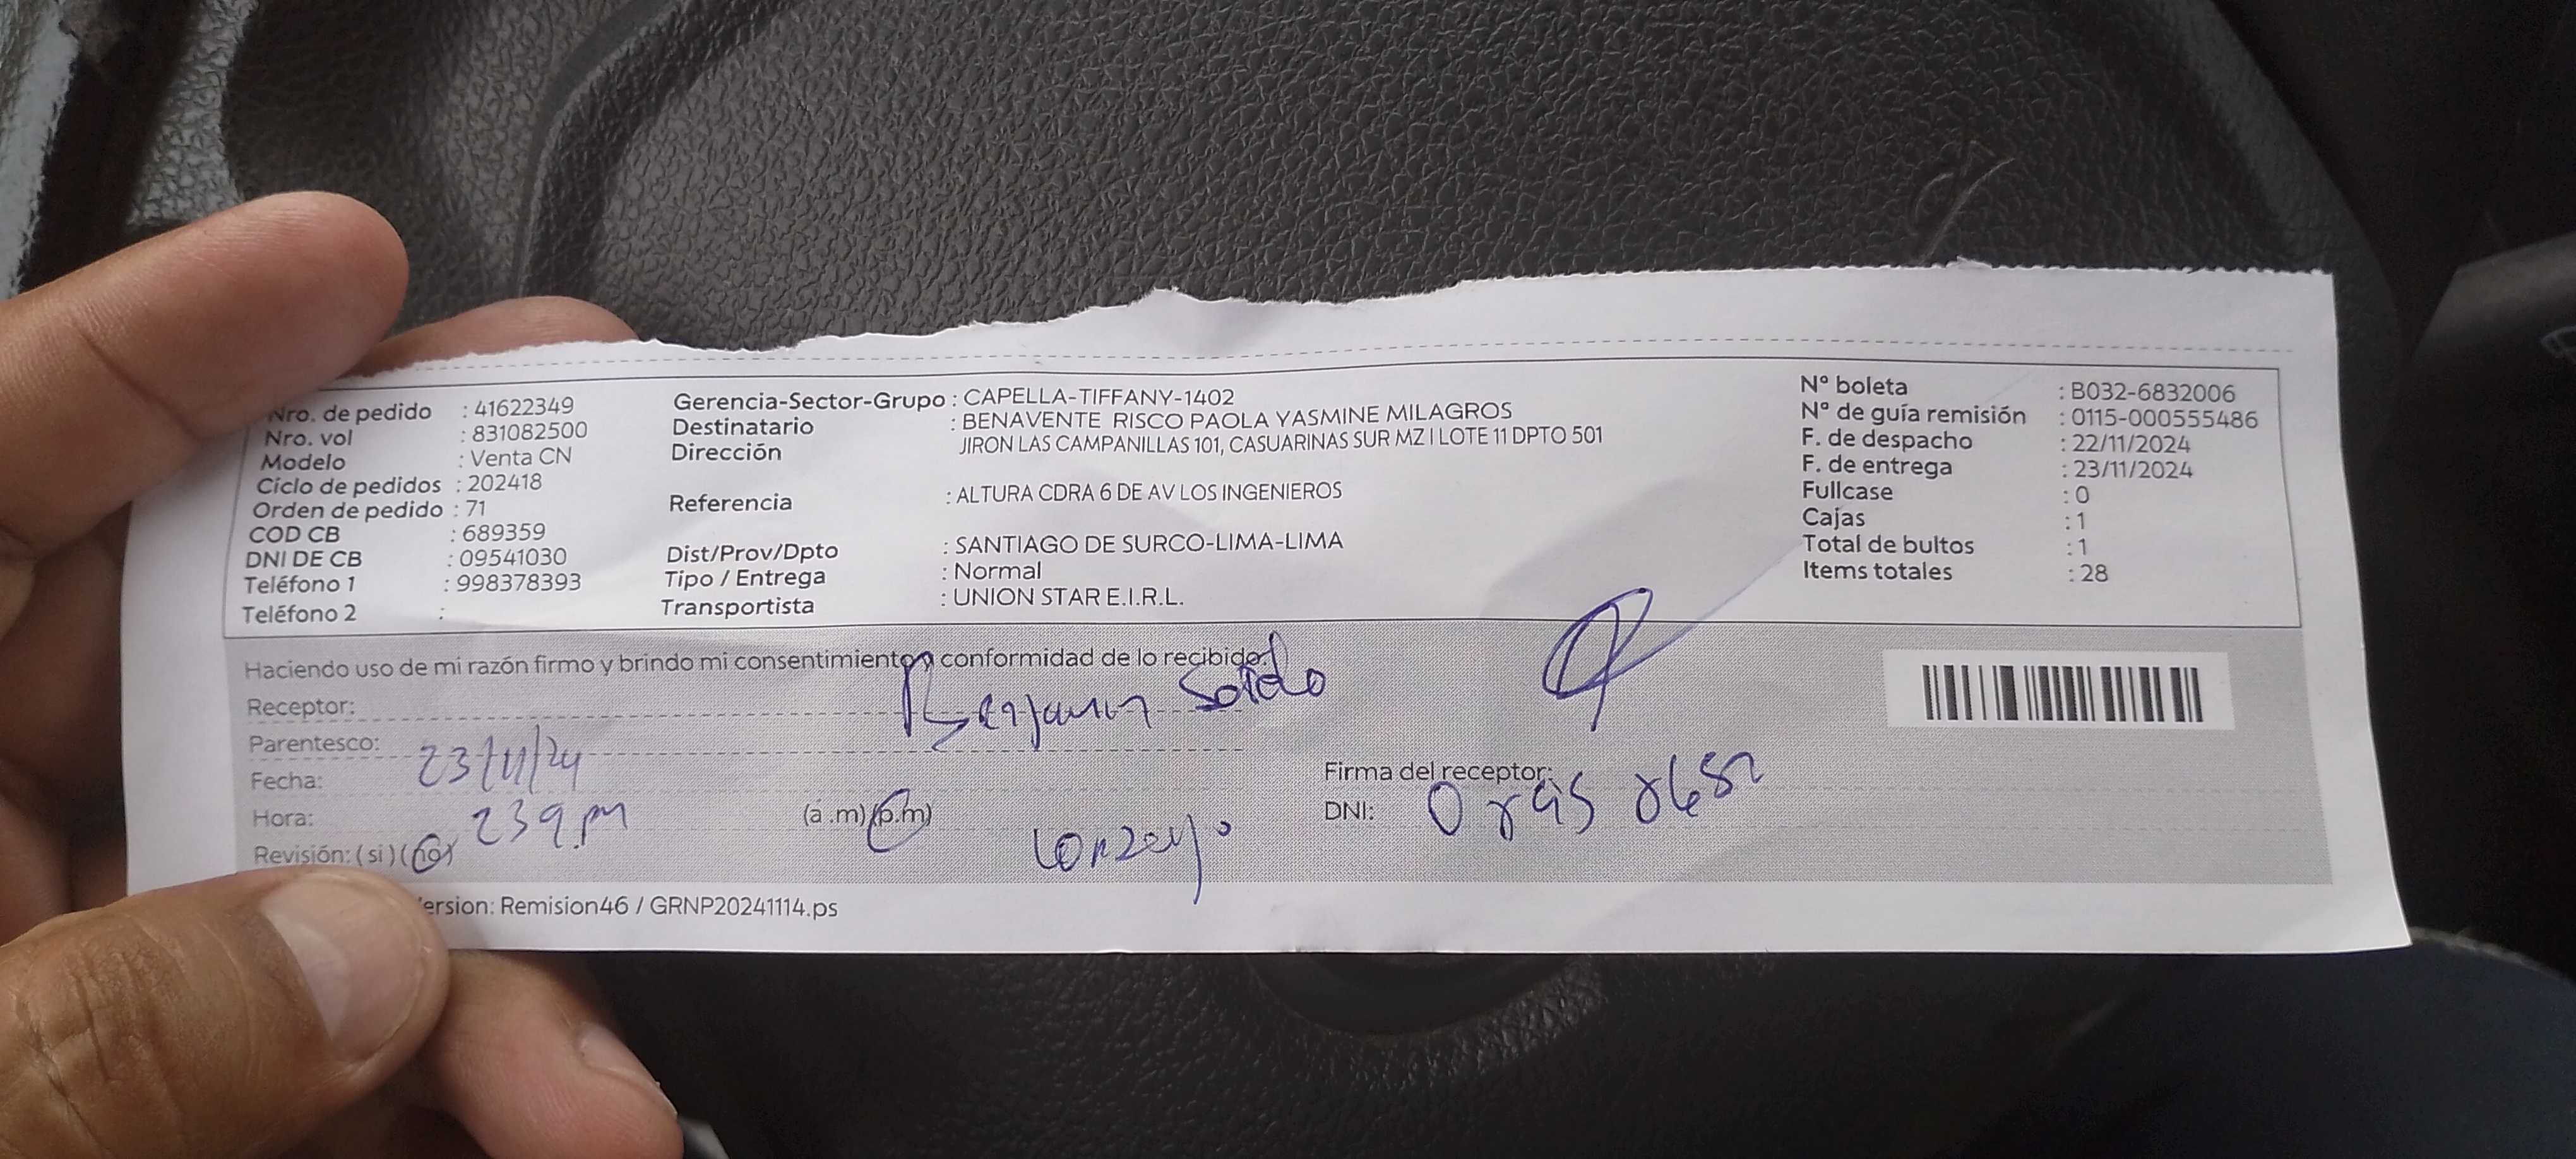 Nro. de pedido : 41622349
Nro. vol : 831082500
Modelo : Venta CN
Ciclo de pedidos : 202418
Orden de pedido : 71
COD CB : 689359
DNI DE CB : 09541030
Teléfono 1 : 998378393
Teléfono 2 :
Gerencia-Sector-Grupo : CAPELLA-TIFFANY-1402
Destinatario : BENAVENTE RISCO PAOLA YASMINE MILAGROS
Dirección JIRON LAS CAMPANILLAS 101, CASUARINAS SUR MZ I LOTE 11 DPTO 501
Referencia : ALTURA CDRA 6 DE AV LOS INGENIEROS
Dist/Prov/Dpto : SANTIAGO DE SURCO-LIMA-LIMA
Tipo / Entrega : Normal
Transportista : UNION STAR E.I.R.L.
N° boleta : B032-6832006
N° de guía remisión : 0115-000555486
F. de despacho : 22/11/2024
F. de entrega : 23/11/2024
Fullcase : 0
Cajas : 1
Total de bultos : 1
Items totales : 28
Haciendo uso de mi razón firmo y brindo mi consentimiento y conformidad de lo recibido.
Receptor: Benjamin Sotelo
Parentesco:
Fecha: 23/11/24
Hora: 239 pm (a .m)(p.m)
Revisión: ( si ) ( no )
Firma del receptor:
DNI:
ersion: Remision46 / GRNP20241114.ps